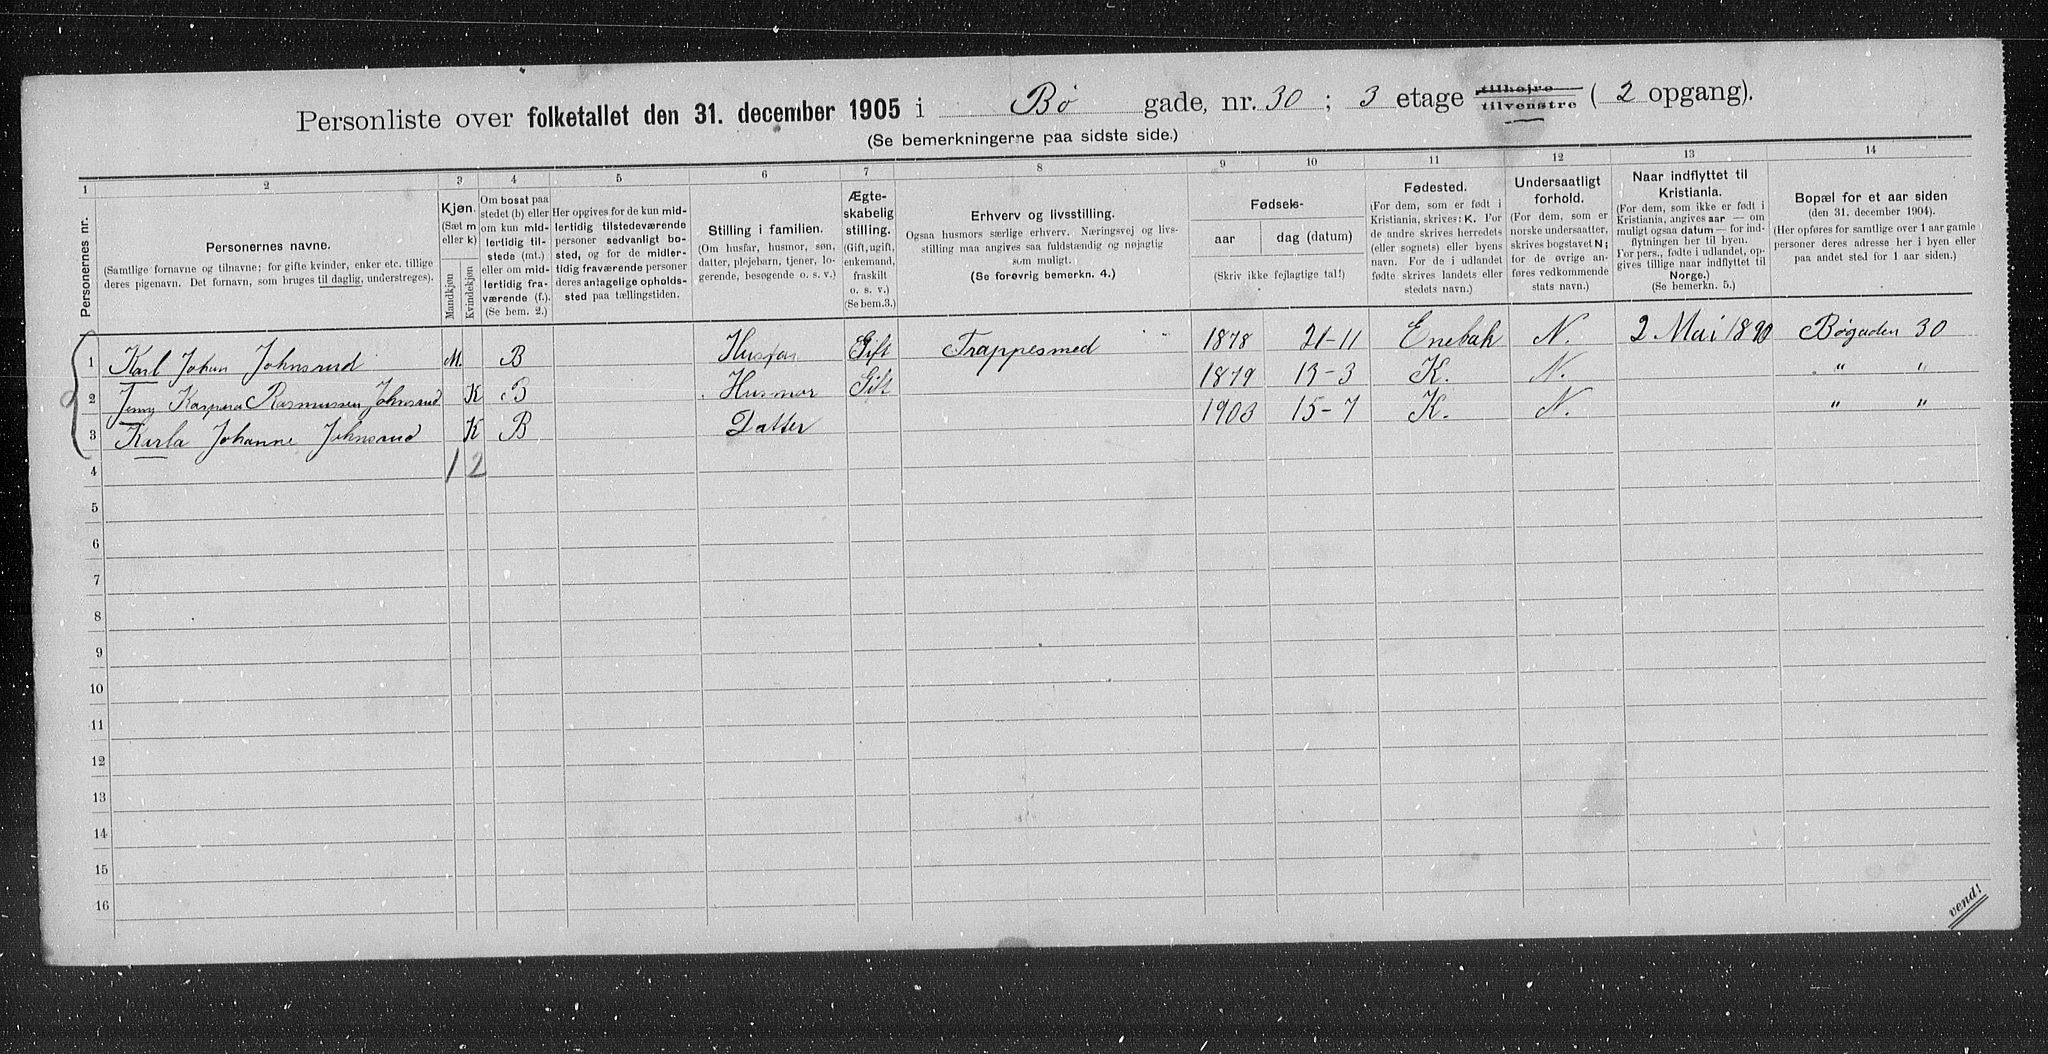 Personliste over folketallet den 31. december 1905 i Bø gade, nr. 30 ; 3 etage tilhøjre tilvenstre ( 2 opgang).
(Se bemerkningerne paa sidste side.)
1 2 3 4 5 6 7 8 9 10 11 12 13 14
Personernes nr.
Personernes navne.
(Samtlige fornavne og tilnavne; for gifte kvinder, enker etc. tillige
deres pigenavn. Det fornavn, som bruges til daglig, understreges).
Kjøn.
(Sæt m
eller k)
Mandkjøn
Kvindekjøn
Om bosat paa
stedet (b) eller
om kun mid-
lertidig til-
stede (mt.)
eller om mid-
lertidig fra-
værende (f.)
(Se bem. 2.)
Her opgives for de kun mid-
lertidig tilstedeværende
personer sedvanligt bo-
sted, og for de midler-
tidig fraværende personer
deres antagelige opholds-
sted paa tællingstiden.
Stilling i familien.
(Om husfar, husmor, søn,
datter, plejebarn, tjener, lo-
gerende, besøgende o. s. v.)
Ægte-
skabelig
stilling.
(Gift, ugift,
enkemand,
fraskilt
o. s. v.)
(Se bem.3.)
Erhverv og livsstilling.
Ogsaa husmors særlige erhverv. Næringsvej og livs-
stilling maa angives saa fuldstændig og nøjagtig
som muligt.
(Se forøvrig bemerkn. 4.)
Fødsels-
aar
dag (datum)
(Skriv ikke fejlagtige tal!)
Fødested.
(For dem, som er født i
Kristiania, skrives: K. For
de andre skrives herredets
(eller sognets) eller byens
navn. For de i udlandet
fødte skrives landets eller
stedets navn.)
Undersaatligt
forhold.
(For dem, som er
norske undersaatter,
skrives bogstavet N;
for de øvrige an-
føres vedkommende
stats navn.)
Naar indflyttet til
Kristiania.
(For dem, som ikke er født i
Kristiania, angives aar — om
muligt ogsaa datum — for ind-
flytningen her til byen.
For pers., fødte i udlandet, op-
gives tillige naar indflyttet til
Norge.)
(Se bemerkn. 5.)
Bopæl for et aar siden
(den 31. december 1904).
(Her opføres for samtlige over 1 aar gamle
personer deres adresse her i byen eller
paa andet sted for 1 aar siden.)
1 Karl Johan Johnsrud M. B Husfar Gift Trappesmed 1878 21-11 Enebak N. 2 Mai 1890 Bøgaden 30
2 Jenny Kaspara Rasmussen Johnsrud K B Husmor Gift 1879 13-3 K. N. " "
3 Karla Johanne Johnsrud K B Datter 1903 15-7 K. N. " "
4 1 2
5
6
7
8
9
10
11
12
13
14
15
16
vend!